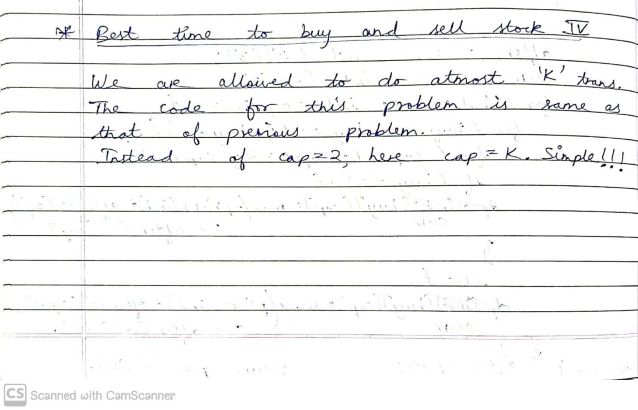 * Best time to buy and sell stock IV
We are allowed to do atmost 'K' trans.
The code for this problem is same as
that of previous problem.
Instead of cap=2; here cap = K. Simple!!!
CS Scanned with CamScanner